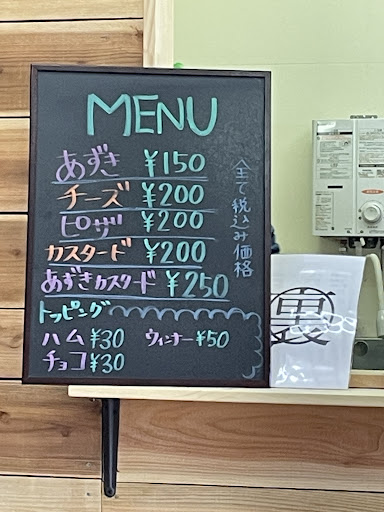 MENU
あずき ¥150
チーズ ¥200
ピザ ¥200
カスタード ¥200
あずきカスタード ¥250
全て税込み価格
トッピング
ハム ¥30 ウィンナー ¥50
チョコ ¥30
裏